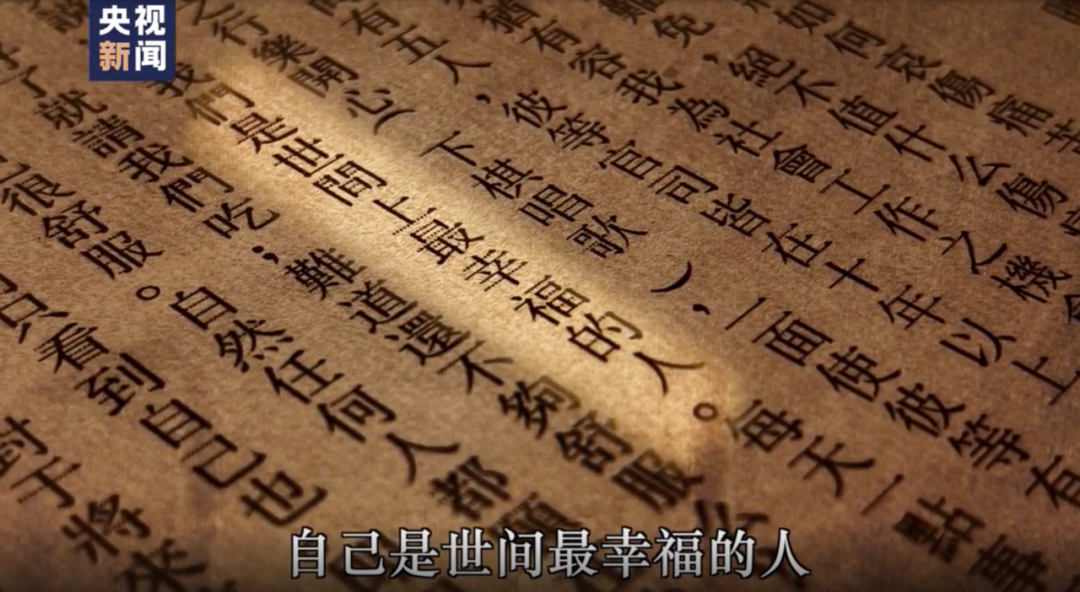 央视
新闻
如何哀傷痛苦
免,絕不值什么傷
猶有容我為社會工作之機會
有五人,彼等官司皆在十年以上
行樂開心(下棋唱歌),一面使彼等有
我們是世間上最幸福的人。每天一點事
了就請我們吃;難道還不夠舒服么
很舒服。自然任何人都願
只看到自己也
對于將來
自己是世间最幸福的人